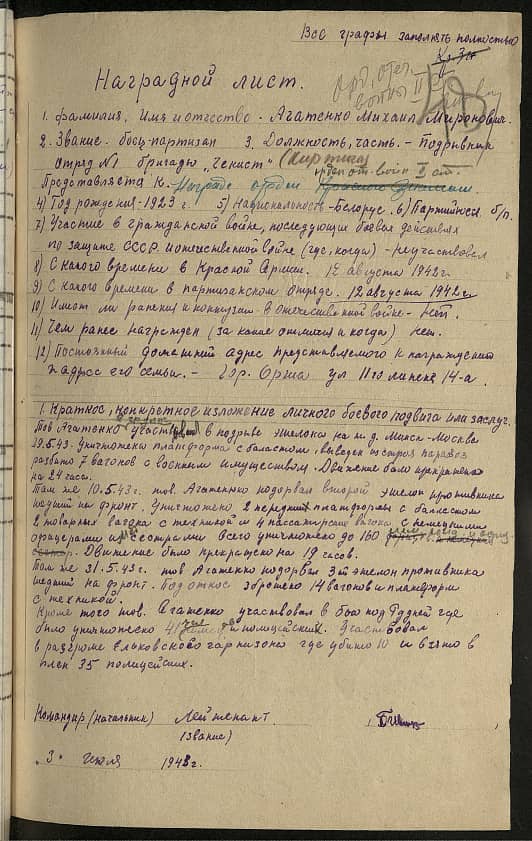 Все графы заполнять полностью
Орд. отеч.
войны II
Наградной лист.
1. Фамилия, Имя и отчество. - Агатенко Михаил Миронович.
2. Звание. боец-партизан 3. Должность, часть. - Подрывник
отряд №1 бригады "Чекист"
орден от. войн II ст.
Представляется к. Награде орден
4) Год рождения - 1923 г. 5) Национальность - Белорус. 6) Партийность б/п.
7) Участие в гражданской войне, последующие боевые действиях
по защите СССР и отечественной войне (где, когда) - не участвовал
8) С какого времени в Красной Армии. 12 августа 1942 г.
9) С какого времени в партизанском отряде. 12 августа 1942 г.
10) Имеет ли ранения и контузии в отечественной войне - Нет.
11) Чем ранее награжден (за какие отличия и когда) Нет.
12) Постоянный домашний адрес представляемого к награждению
и адрес его семьи. - Гор. Орша ул 14-а.
1. Краткое, конкретное изложение личного боевого подвига или заслуг.
Тов Агатенко участвовал в подрыве эшелона на ж.д. Минск-Москва
5.43. Уничтожена платформа с баластом, выведен из строя паровоз
разбито 7 вагонов с военным имуществом. Движение было прекращено
на 24 часа.
Там же 10.5.43 г. тов. Агатенко подорвал второй эшелон противника
шедший на фронт. Уничтожено 2 передних платформы с балластом
2 товарных вагона с техникой и 4 пассажирские вагона с немецкими
офицерами и сестрами всего уничтожено до 160
Движение было прекращено на 19 часов.
Там же 31.5.43 г. тов Агатенко подорвал 3й эшелон противника
шедший на фронт. Под откос сброшено 14 вагонов и платформ
с техникой.
Кроме того тов. Агатенко участвовал в бою под Рудней где
было уничтожено 41 немцев и полицейских. Участвовал
в разгроме гарнизона где убито 10 и взято в
плен 35 полицейских.
Командир (начальник) Лейтенант
(звание)
"3" июля 1943 г.